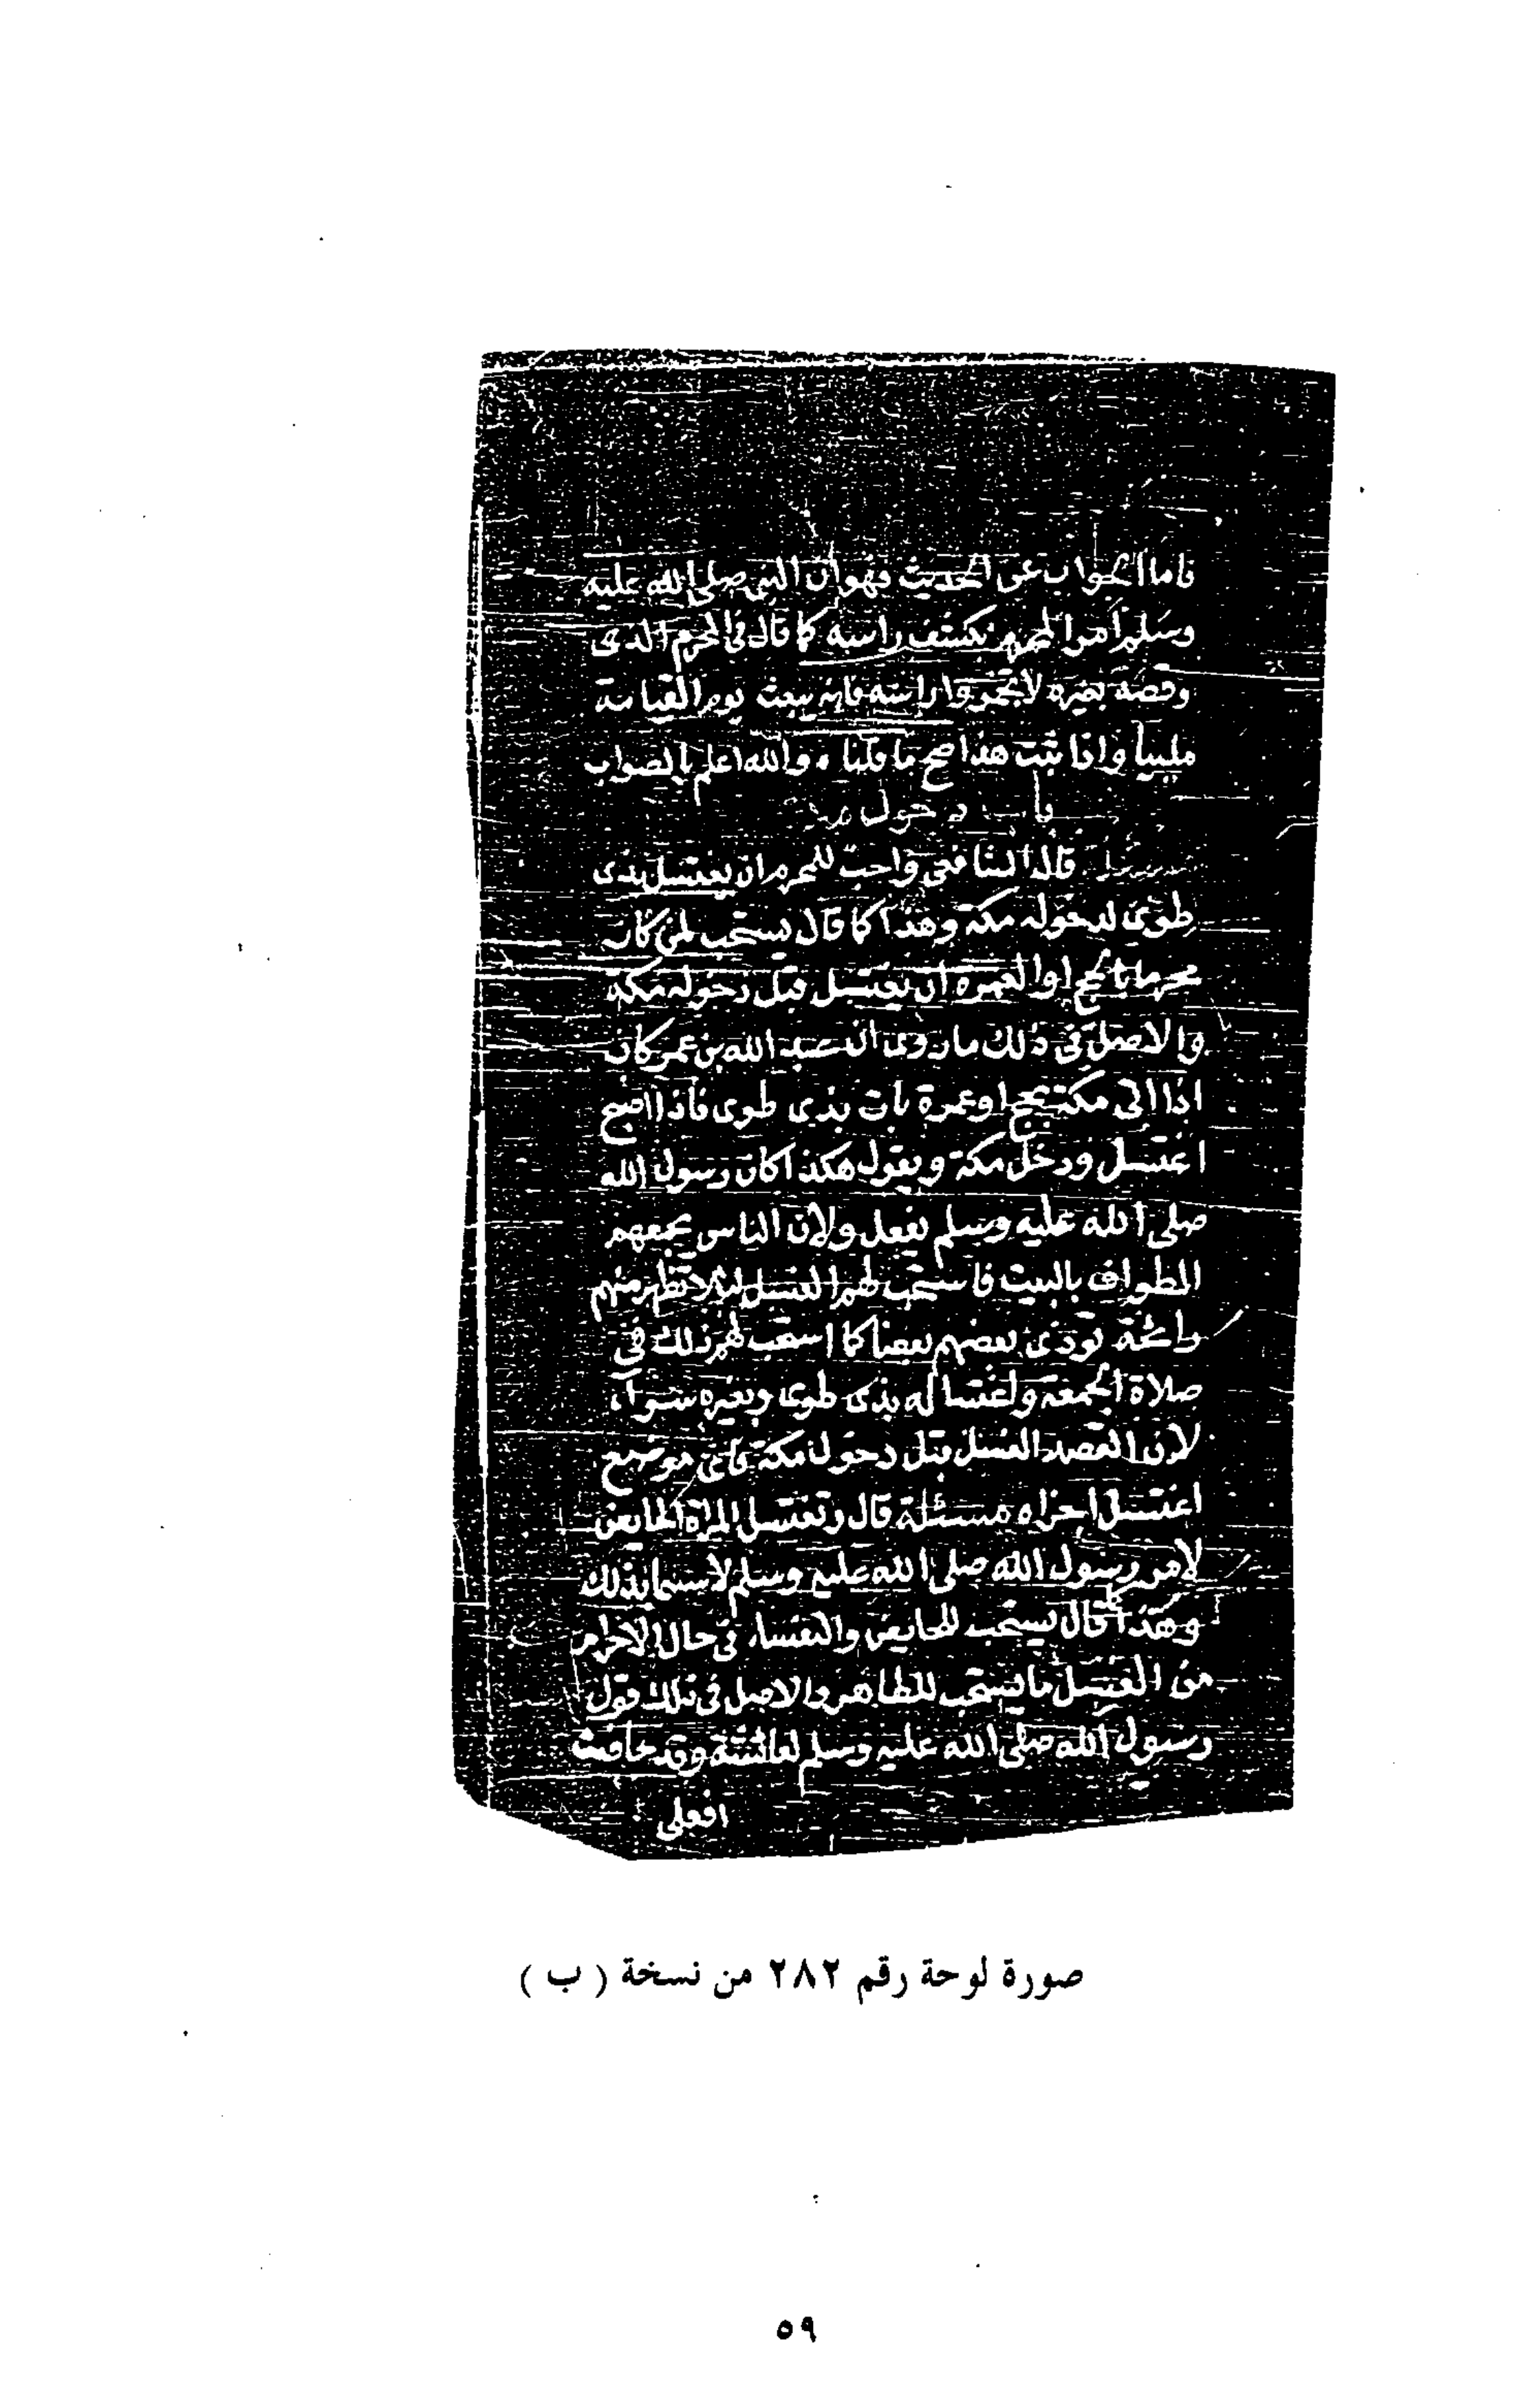 فاما الجواب عن الحديث فهو ان النبي صلى الله عليه
وسلم امر المحرم بكشف راسه كما قال في المحرم الذي
وقصته بعيره لا تخمروا راسه فانه يبعث يوم القيامة
ملبيا واذا ثبت هذا صح ما قلناه والله اعلم بالصواب
باب دخول
قال الشافعي واحب للمحرم ان يغتسل بذى
طوى لدخوله مكة وهذا كما قال يستحب لمن كان
محرما بالحج او العمرة ان يغتسل قبل دخوله مكة
والاصل في ذلك ما روى ان عبد الله بن عمر كان
اذا اتى مكة بحج او عمرة بات بذى طوى فاذا اصبح
اغتسل ودخل مكة ويقول هكذا كان رسول الله
صلى الله عليه وسلم يفعل ولان الناس يجمعهم
الطواف بالبيت فاستحب لهم الغسل لئلا تظهر منهم
رائحة توذى بعضهم بعضا كما استحب لهم ذلك في
صلاة الجمعة واغتساله بذى طوى وبغيره سواء
لان القصد الغسل قبل دخول مكة فاى موضع
اغتسل اجزاه مسئلة قال وتغتسل المراة الحايض
لامر رسول الله صلى الله عليه وسلم لاسما بذلك
وهذا كما قال يستحب للحايض والنفساء في حال الاحرام
من الغسل ما يستحب للطاهر والاصل في ذلك قول
رسول الله صلى الله عليه وسلم لعائشة وقد حاضت
افعلى
صورة لوحة رقم ٢٨٢ من نسخة ( ب )
٥٩